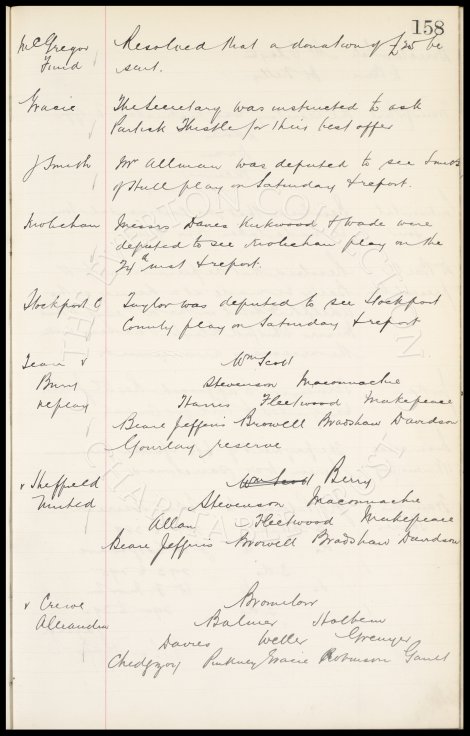 158
McGregor Fund
Resolved that a donation of £25 be
sent.
Gracie
The Secretary was instructed to ask
Partick Thistle for their best offer
J Smith
Mr Allman was deputed to see Smith
of Hull play on Saturday & report.
Messrs Davies Kirkwood & Wade were
deputed to see play on the
24th inst & report.
Stockport C
Taylor was deputed to see Stockport
County play on Saturday & report
Team v
Bury
replay
Wm Scott
Stevenson Maconnachie
Harris Fleetwood Makepeace
Beare Jefferis Browell Bradshaw Davidson
Gourlay reserve
v Sheffield
United
Wm Scott Berry
Stevenson Maconnachie
Allan Fleetwood Makepeace
Beare Jefferis Browell Bradshaw Davidson
v Crewe
Alexandra
Bromilow
Balmer Holbem
Davies Weller Grenyer
Chedgzoy Pinkney Gracie Robinson Gault